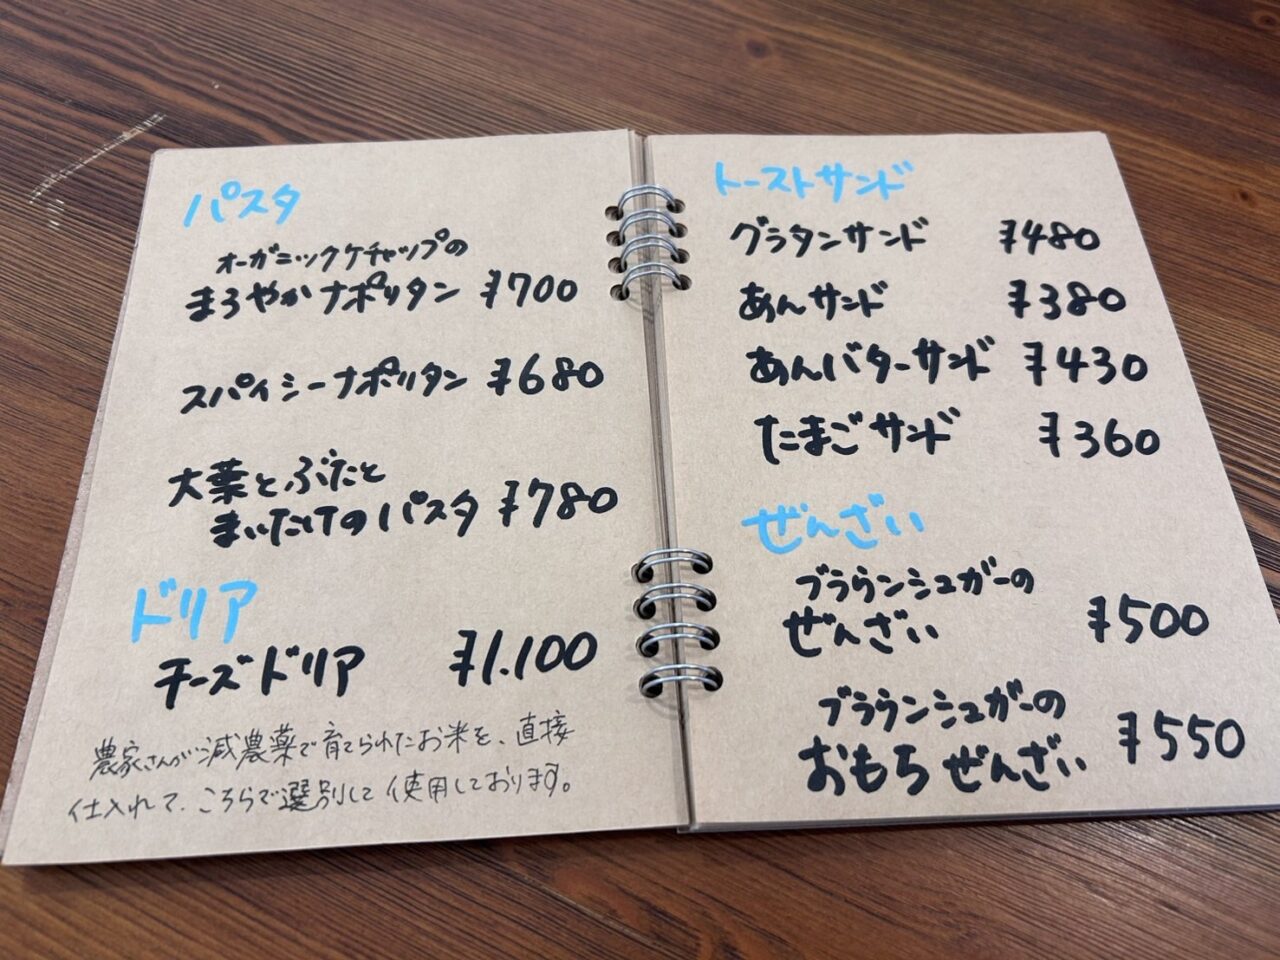 パスタ
オーガニックケチャップの
まろやかナポリタン ¥700
スパイシーナポリタン ¥680
大葉とぶたと
まいたけのパスタ ¥780
ドリア
チーズドリア ¥1.100
農家さんが減農薬で育てられたお米を、直接
仕入れて、こちらで選別して使用しております。
トーストサンド
グラタンサンド ¥480
あんサンド ¥380
あんバターサンド ¥430
たまごサンド ¥360
ぜんざい
ブラウンシュガーの
ぜんざい ¥500
ブラウンシュガーの
おもちぜんざい ¥550